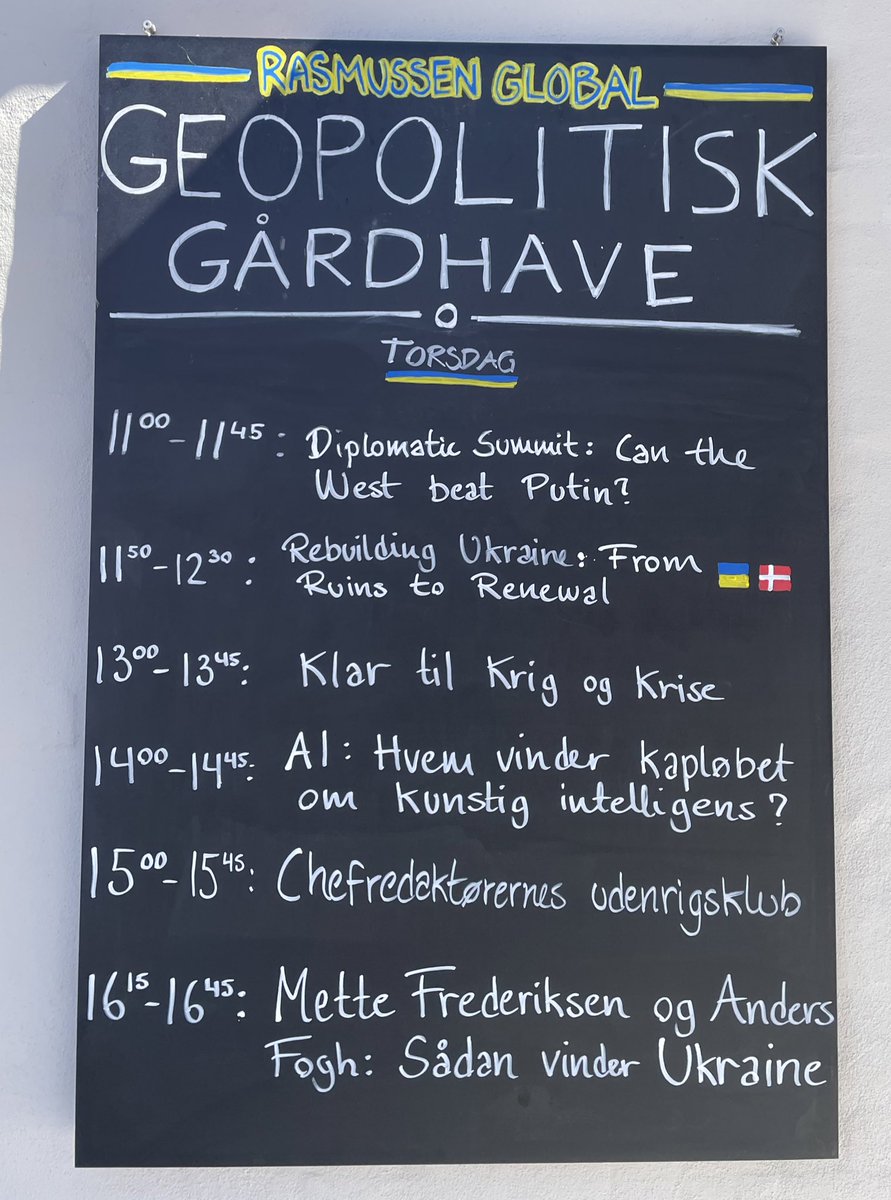 RASMUSSEN GLOBAL
GEOPOLITISK
GÅRDHAVE
TORSDAG
11⁰⁰-11⁴⁵: Diplomatic Summit: Can the
West beat Putin?
11⁵⁰-12³⁰: Rebuilding Ukraine: From
Ruins to Renewal
13⁰⁰-13⁴⁵: Klar til Krig og Krise
14⁰⁰-14⁴⁵: AI: Hvem vinder kapløbet
om kunstig intelligens?
15⁰⁰-15⁴⁵: Chefredaktørernes udenrigsklub
16¹⁵-16⁴⁵: Mette Frederiksen og Anders
Fogh: Sådan vinder Ukraine